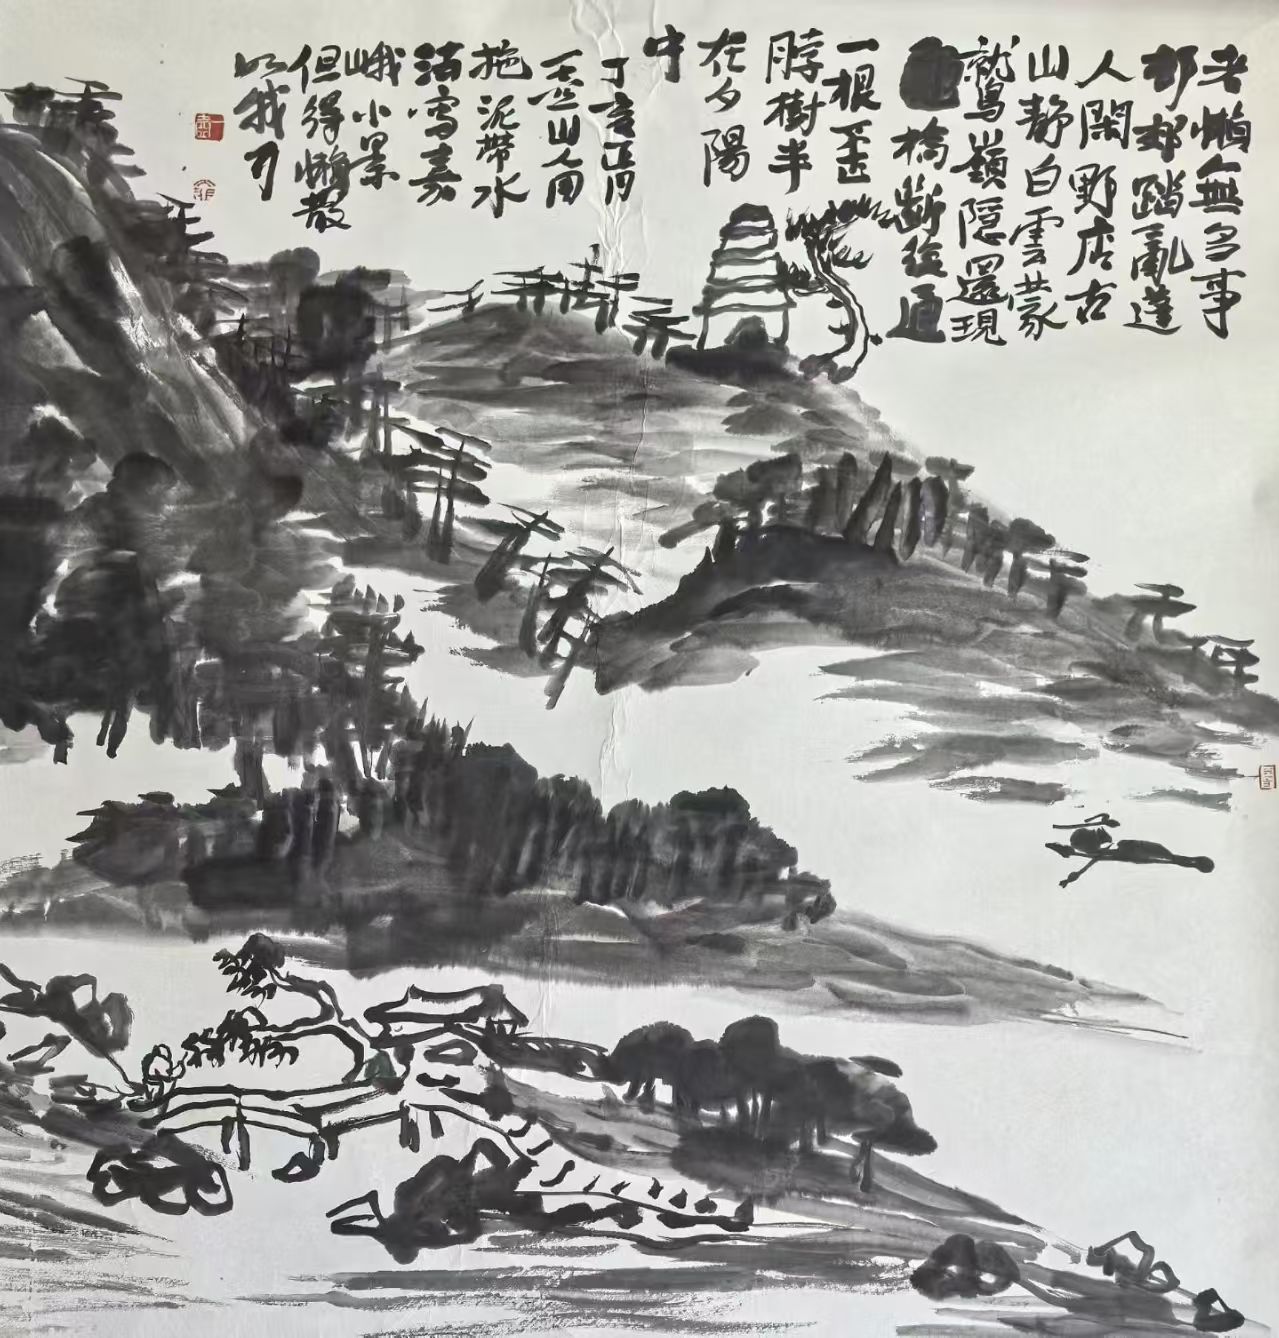 老懶無多事
邨郊踏亂蓬
人閑野店古
山静白雲蒙
鷲嶺隱還現
橋斷復通
一根歪
脖樹半
在夕陽
中
丁亥正月
山人用
拖泥帶水
法寫嘉
峨小景
但得懶散
似我可